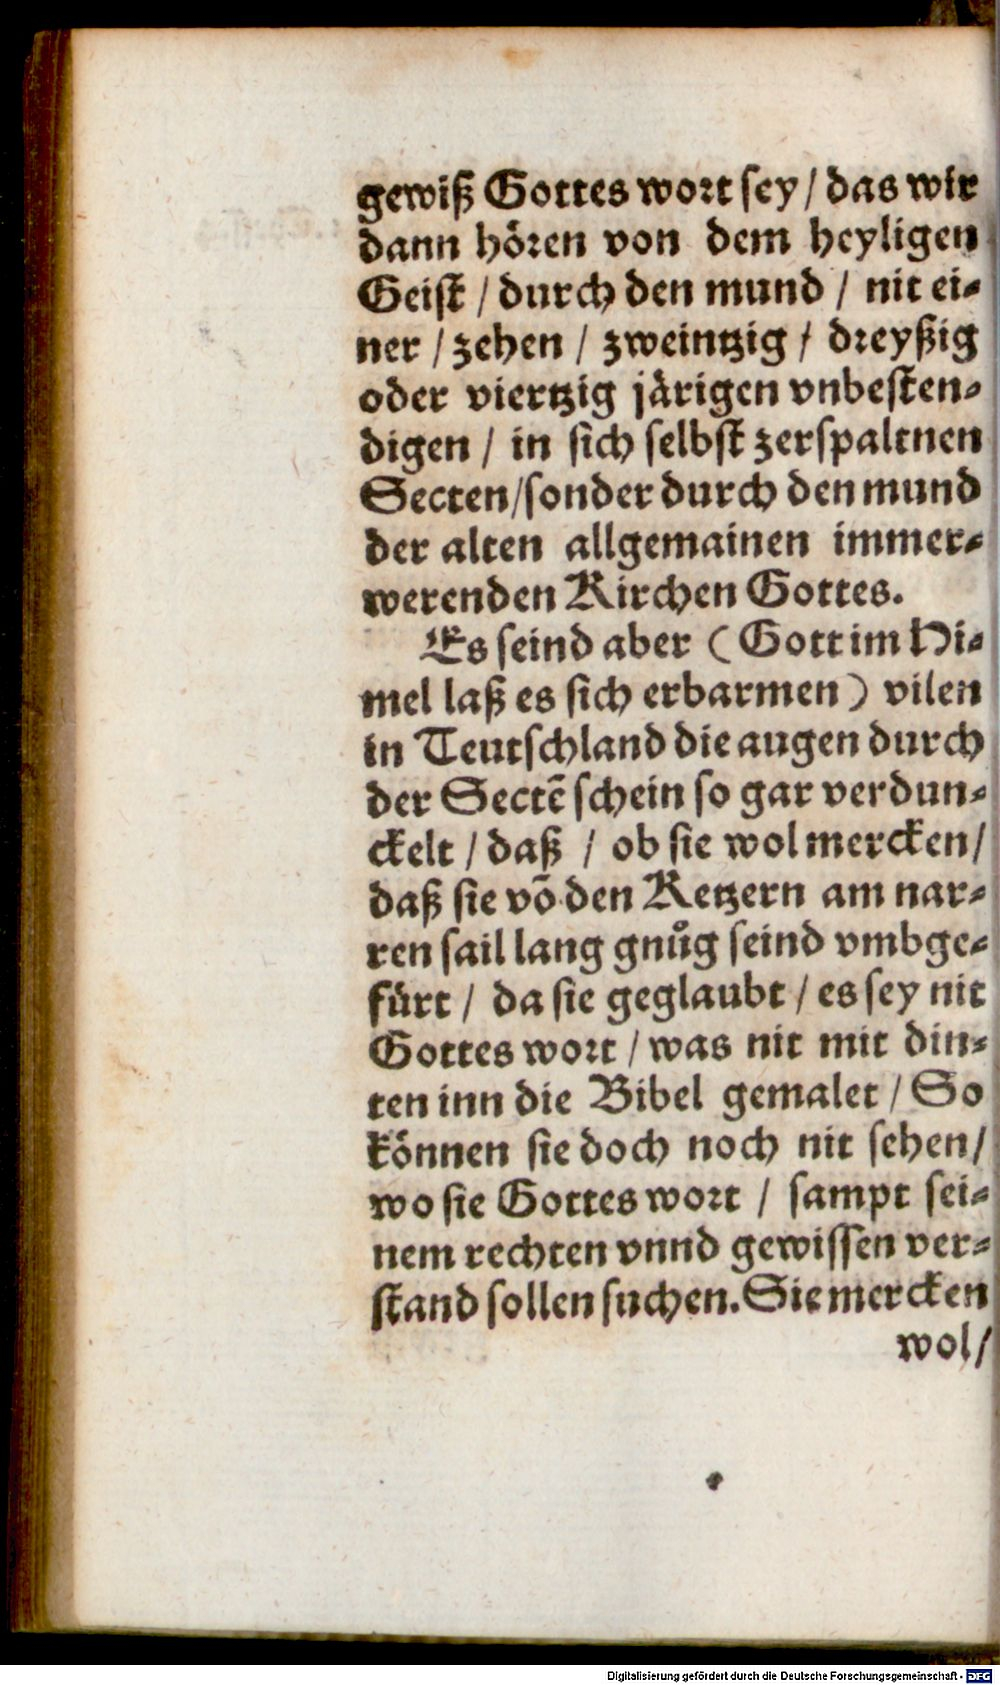 gewiß Gottes wort sey / das wir
dann hören von dem heyligen
Geist / durch den mund / nit ei-
ner / zehen / zweintzig / dreyßig
oder viertzig järigen vnbesten-
digen / in sich selbst zerspaltnen
Secten / sonder durch den mund
der alten allgemainen immer-
werenden Kirchen Gottes.
Es seind aber ( Gott im Hi-
mel laß es sich erbarmen ) vilen
in Teutschland die augen durch
der Sectē schein so gar verdun-
ckelt / daß / ob sie wol mercken /
daß sie vō den Ketzern am nar-
ren sail lang gnůg seind vmbge-
fürt / da sie geglaubt / es sey nit
Gottes wort / was nit mit din-
ten inn die Bibel gemalet / So
können sie doch noch nit sehen /
wo sie Gottes wort / sampt sei-
nem rechten vnnd gewissen ver-
stand sollen suchen. Sie mercken
wol /
Digitalisierung gefördert durch die Deutsche Forschungsgemeinschaft - DFG